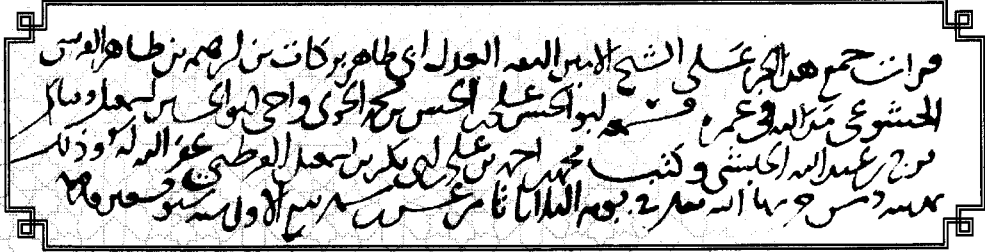 قرأت جميع هذا الجزء على الشيخ الامين الثقة العدل ابي طاهر بركات بن ابرهيم بن طاهر القرشي
الخشوعي مد الله في عمره وسمعه ابو الحسن علي بن الحسن بن محمد واخي ابو الحسين اسمعيل
فرج بن عبد الله الحبشي وكتب محمد بن احمد بن علي بن ابي بكر بن اسمعيل القرطبي غفر الله له وذلك
بمدينة دمشق حرسها الله تعالى في يوم الثلاثا عشر شهر ربيع الاول سنة وتسعين